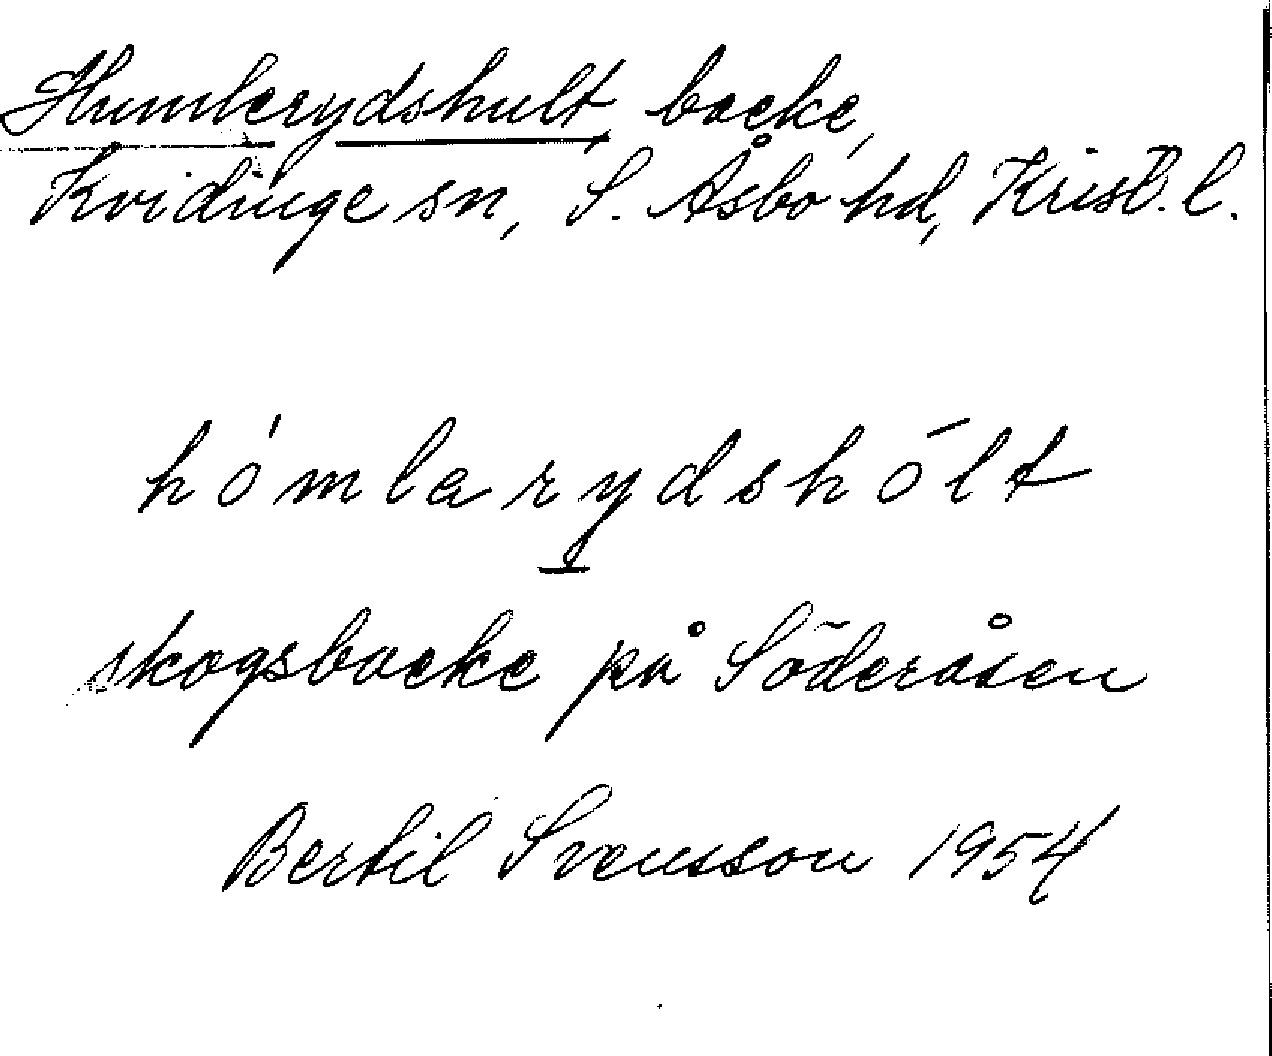 Humlerydshult, backe,
Kvidinge sn, S. Åsbo hd, Krist. l.
hómlarydshólt
skogsbacke på Söderåsen
Bertil Svensson 1954